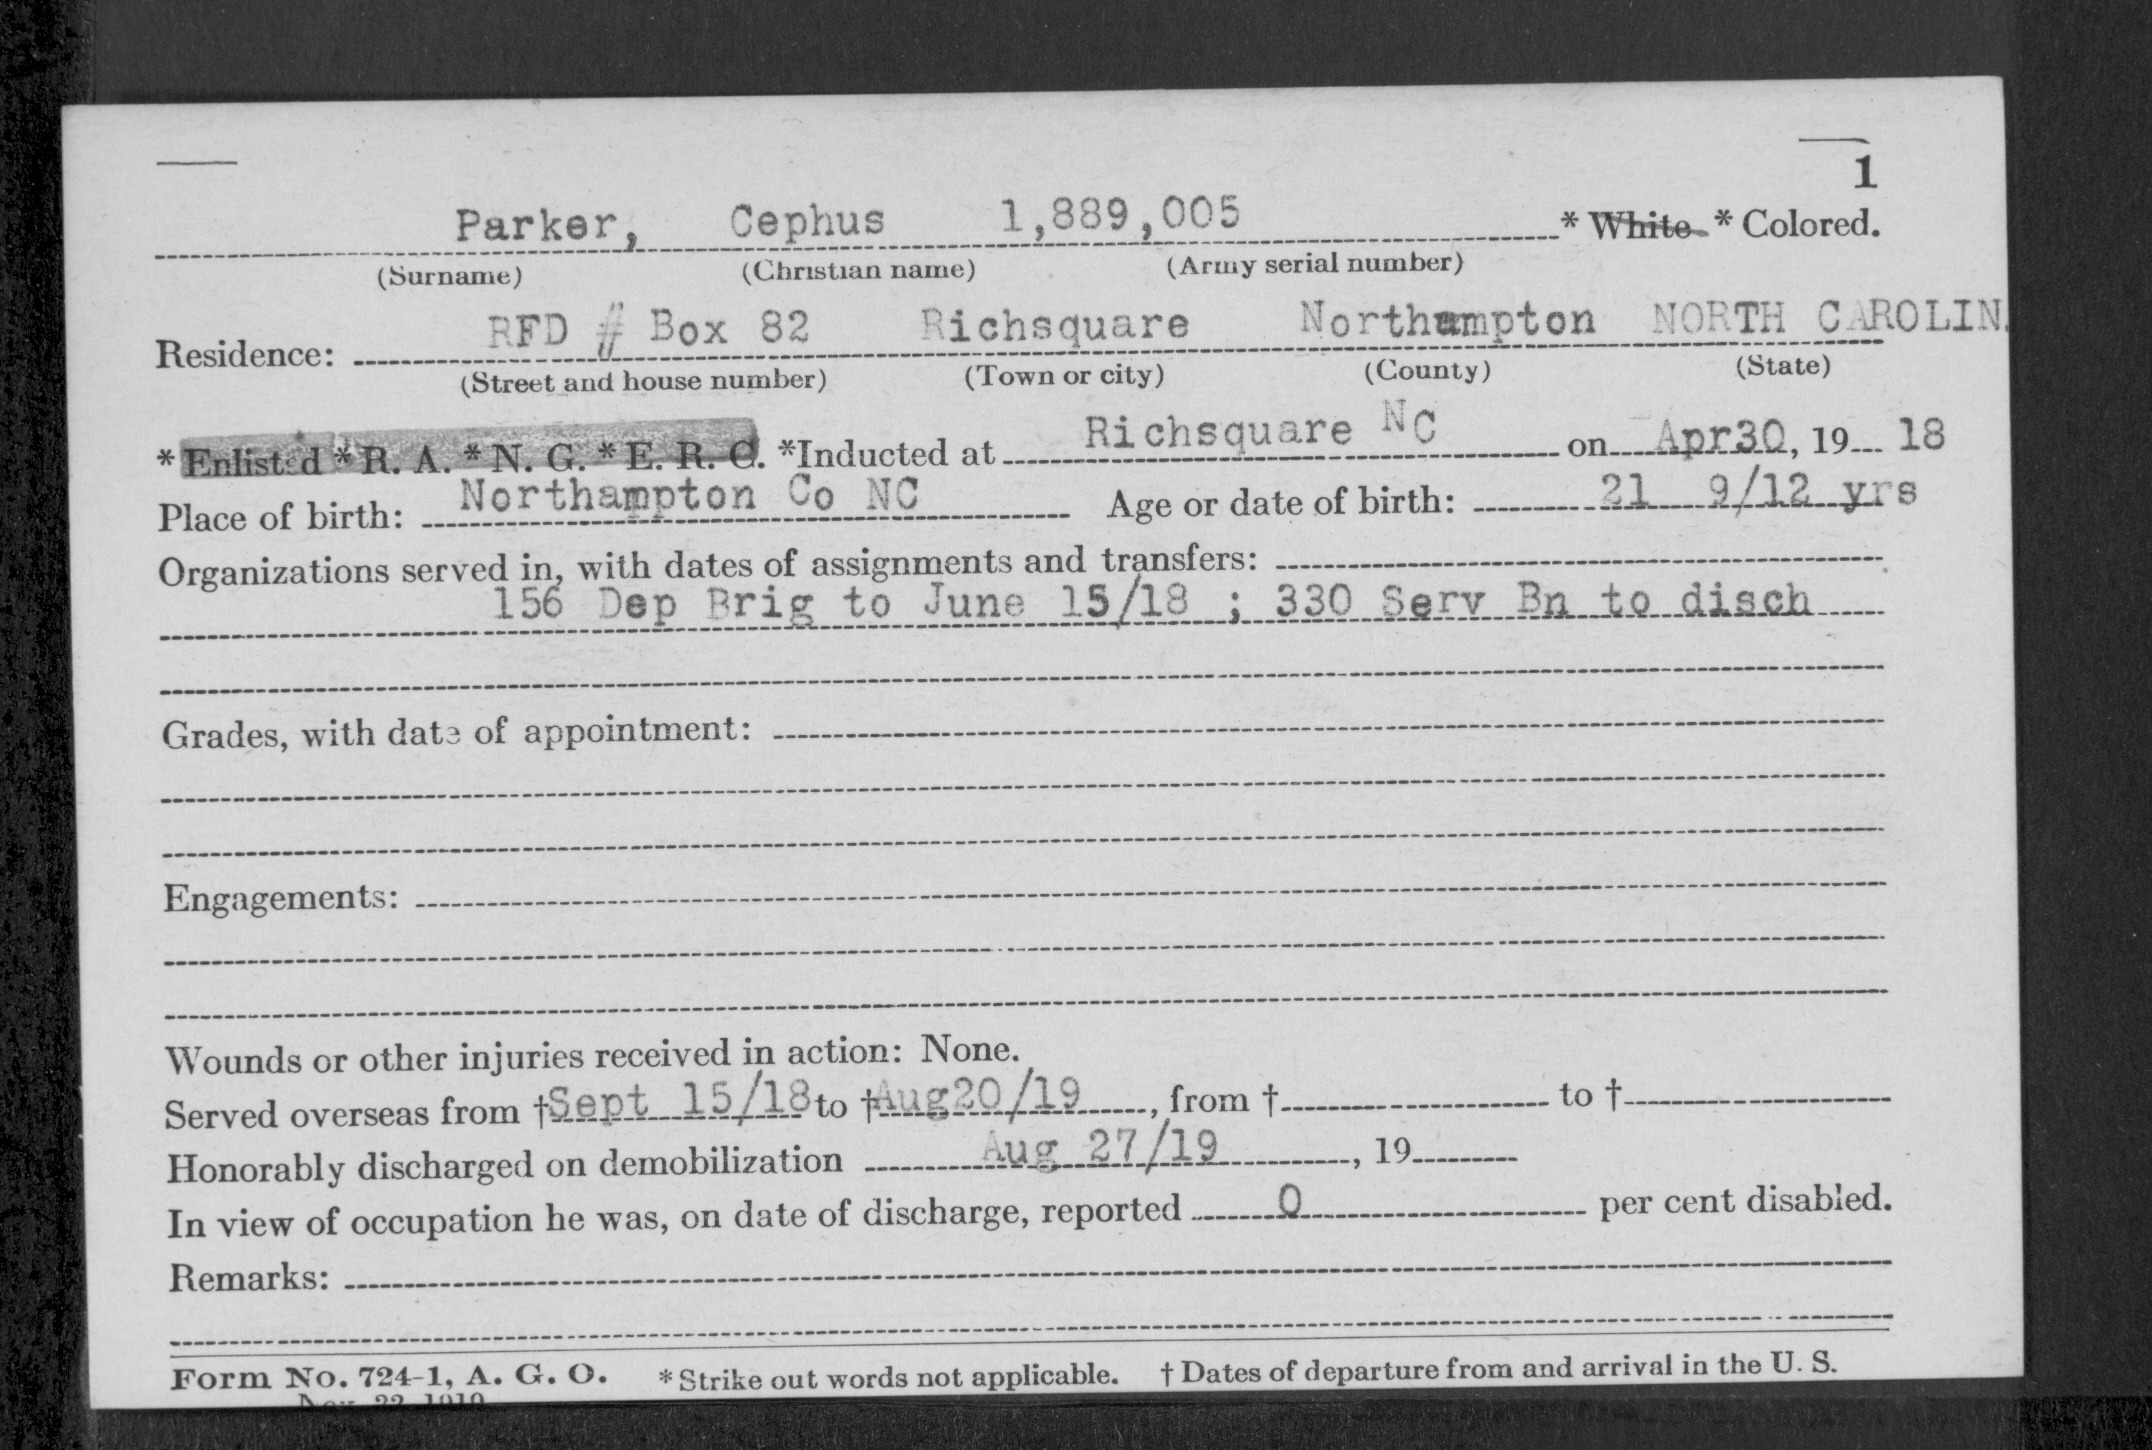 1
Parker, Cephus 1,889,005 * White * Colored.
(Surname) (Christian name) (Army serial number)
Residence: RFD # Box 82 Richsquare Northampton NORTH CAROLIN
(Street and house number) (Town or city) (County) (State)
* Enlisted * R. A. * N. G. * E. R. C. *Inducted at Richsquare NC on Apr30, 19 18
Place of birth: Northampton Co NC Age or date of birth: 21 9/12 yrs
Organizations served in, with dates of assignments and transfers:
156 Dep Brig to June 15/18 ; 330 Serv Bn to disch
Grades, with date of appointment:
Engagements:
Wounds or other injuries received in action: None.
Served overseas from †Sept 15/18 to †Aug20/19, from † to †
Honorably discharged on demobilization Aug 27/19, 19
In view of occupation he was, on date of discharge, reported 0 per cent disabled.
Remarks:
Form No. 724-1, A. G. O. * Strike out words not applicable. † Dates of departure from and arrival in the U. S.
Nov. 22, 1919